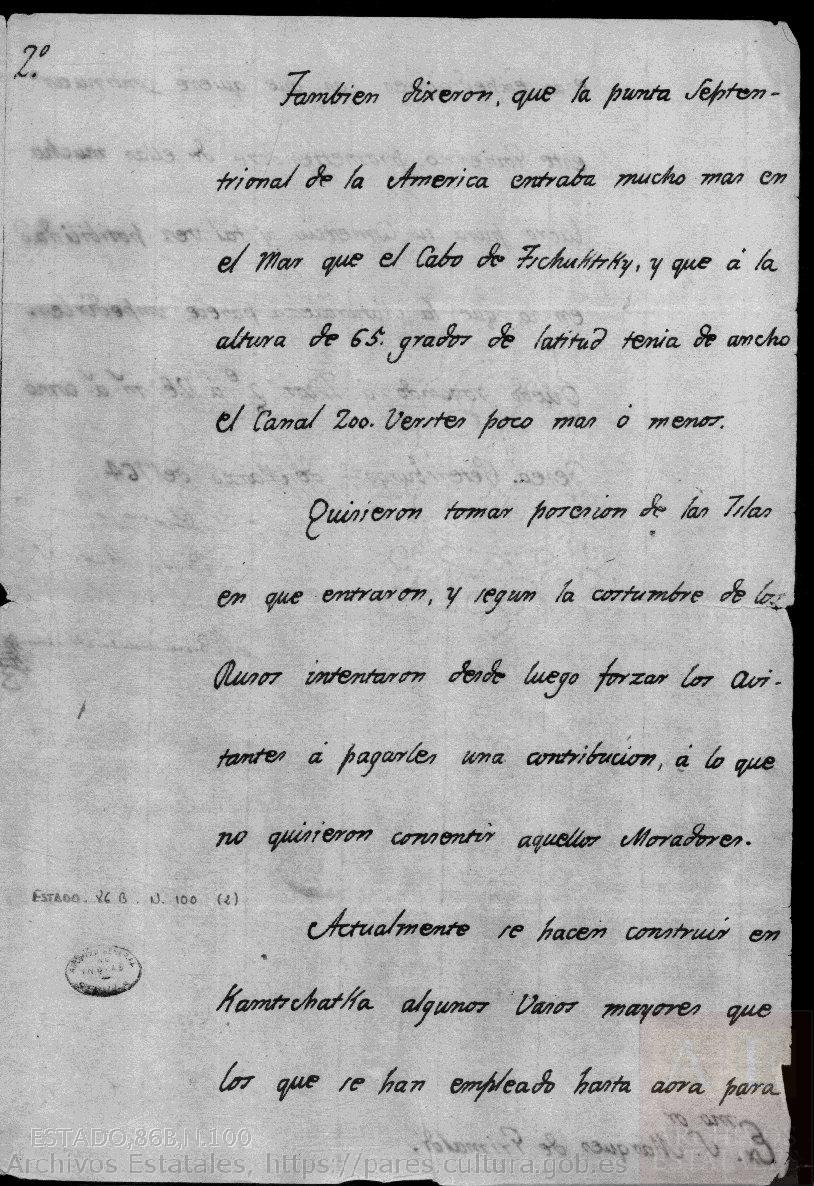 2.º
Tambien dixeron, que la punta Septen-
trional de la America entraba mucho mas en
el Mar que el Cabo de Tschuktsky, y que á la
altura de 65. grados de latitud tenia de ancho
el Canal 200. Verstes poco mas ó menos.
Quisieron tomar posesion de las Islas
en que entraron, y segun la costumbre de los
Rusos intentaron desde luego forzar los avi-
tantes á pagarles una contribucion, á lo que
no quisieron consentir aquellos Moradores.
ESTADO. 86 B. N. 100 (2)
Actualmente se hacen construir en
Kamtschatka algunos Vasos mayores que
los que se han empleado hasta aora para
Ex.mo S.or Marques de Grimaldi.
ESTADO,86B,N.100
Archivos Estatales, https://pares.cultura.gob.es